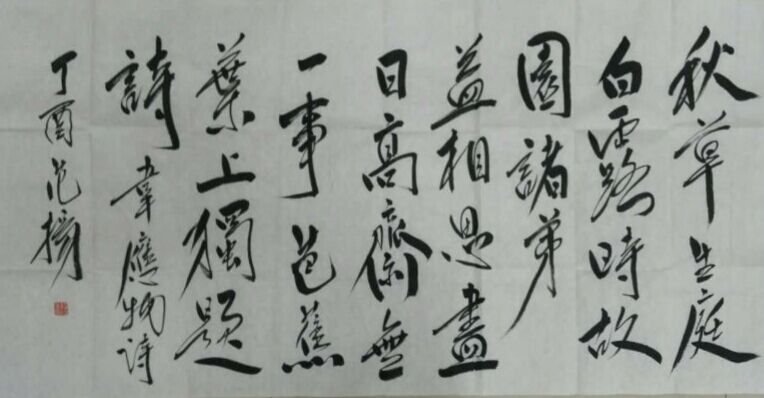 秋草生庭
白露時故
園諸弟
益相思盡
日高齋無
一事芭蕉
葉上獨題
詩 韋應物詩
丁酉范